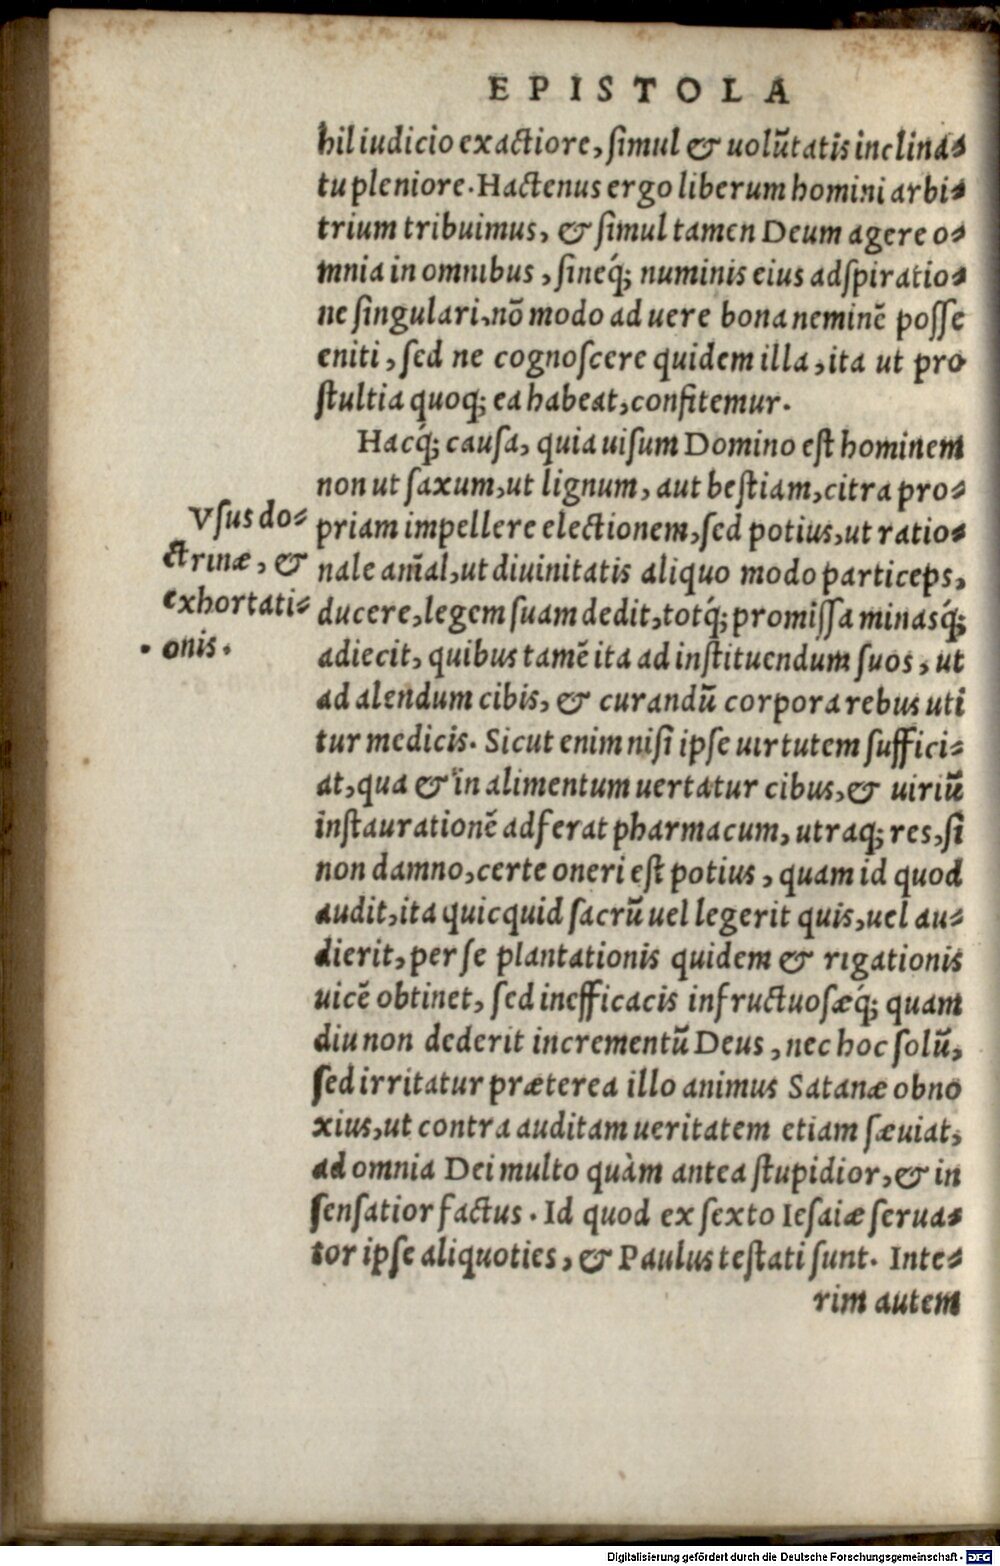 EPISTOLA
hil iudicio exactiore, ſimul & uolũtatis inclina-
tu pleniore. Hactenus ergo liberum homini arbi-
trium tribuimus, & ſimul tamen Deum agere o-
mnia in omnibus, ſineq́; numinis eius adſpiratio-
ne ſingulari, nõ modo ad uere bona neminẽ poſſe
eniti, ſed ne cognoſcere quidem illa, ita ut pro
ſtultia quoq; ea habeat, confitemur.
Hacq́; cauſa, quia uiſum Domino eſt hominem
non ut ſaxum, ut lignum, aut beſtiam, citra pro-
Vſus do-
ctrinæ, &
exhortati-
onis.
priam impellere electionem, ſed potius, ut ratio-
nale am̃al, ut diuinitatis aliquo modo particeps,
ducere, legem ſuam dedit, totq́; promiſſa minasq́;
adiecit, quibus tamẽ ita ad inſtituendum ſuos, ut
ad alendum cibis, & curandũ corpora rebus uti
tur medicis. Sicut enim niſi ipſe uirtutem ſuffici-
at, qua & in alimentum uertatur cibus, & uiriũ
inſtaurationẽ adferat pharmacum, utraq; res, ſi
non damno, certe oneri eſt potius, quam id quod
audit, ita quicquid ſacrũ uel legerit quis, uel au-
dierit, per ſe plantationis quidem & rigationis
uicẽ obtinet, ſed inefficacis infructuoſæq́; quam
diu non dederit incrementũ Deus, nec hoc ſolũ,
ſed irritatur præterea illo animus Satanæ obno
xius, ut contra auditam ueritatem etiam ſæuiat,
ad omnia Dei multo quàm antea ſtupidior, & in
ſenſatior factus. Id quod ex ſexto Ieſaiæ ſerua-
tor ipſe aliquoties, & Paulus teſtati ſunt. Inte-
rim autem
Digitalisierung gefördert durch die Deutsche Forschungsgemeinschaft - DFG